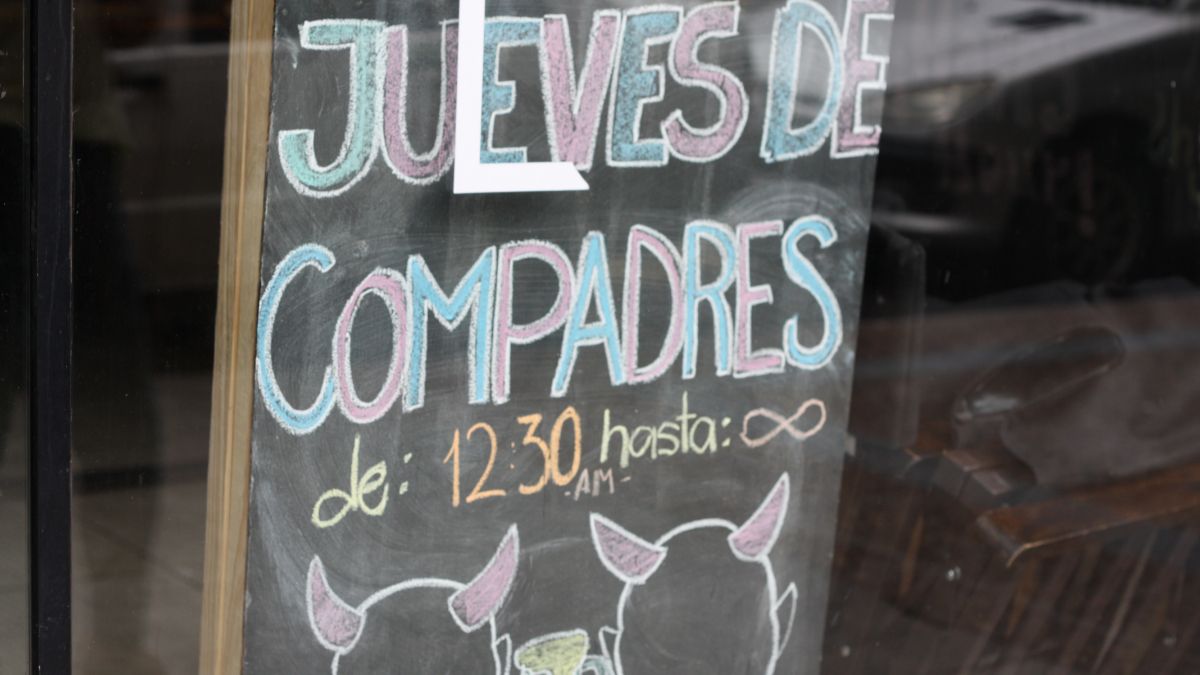 JUEVES DE
COMPADRES
de: 12:30 hasta: ∞
-AM-